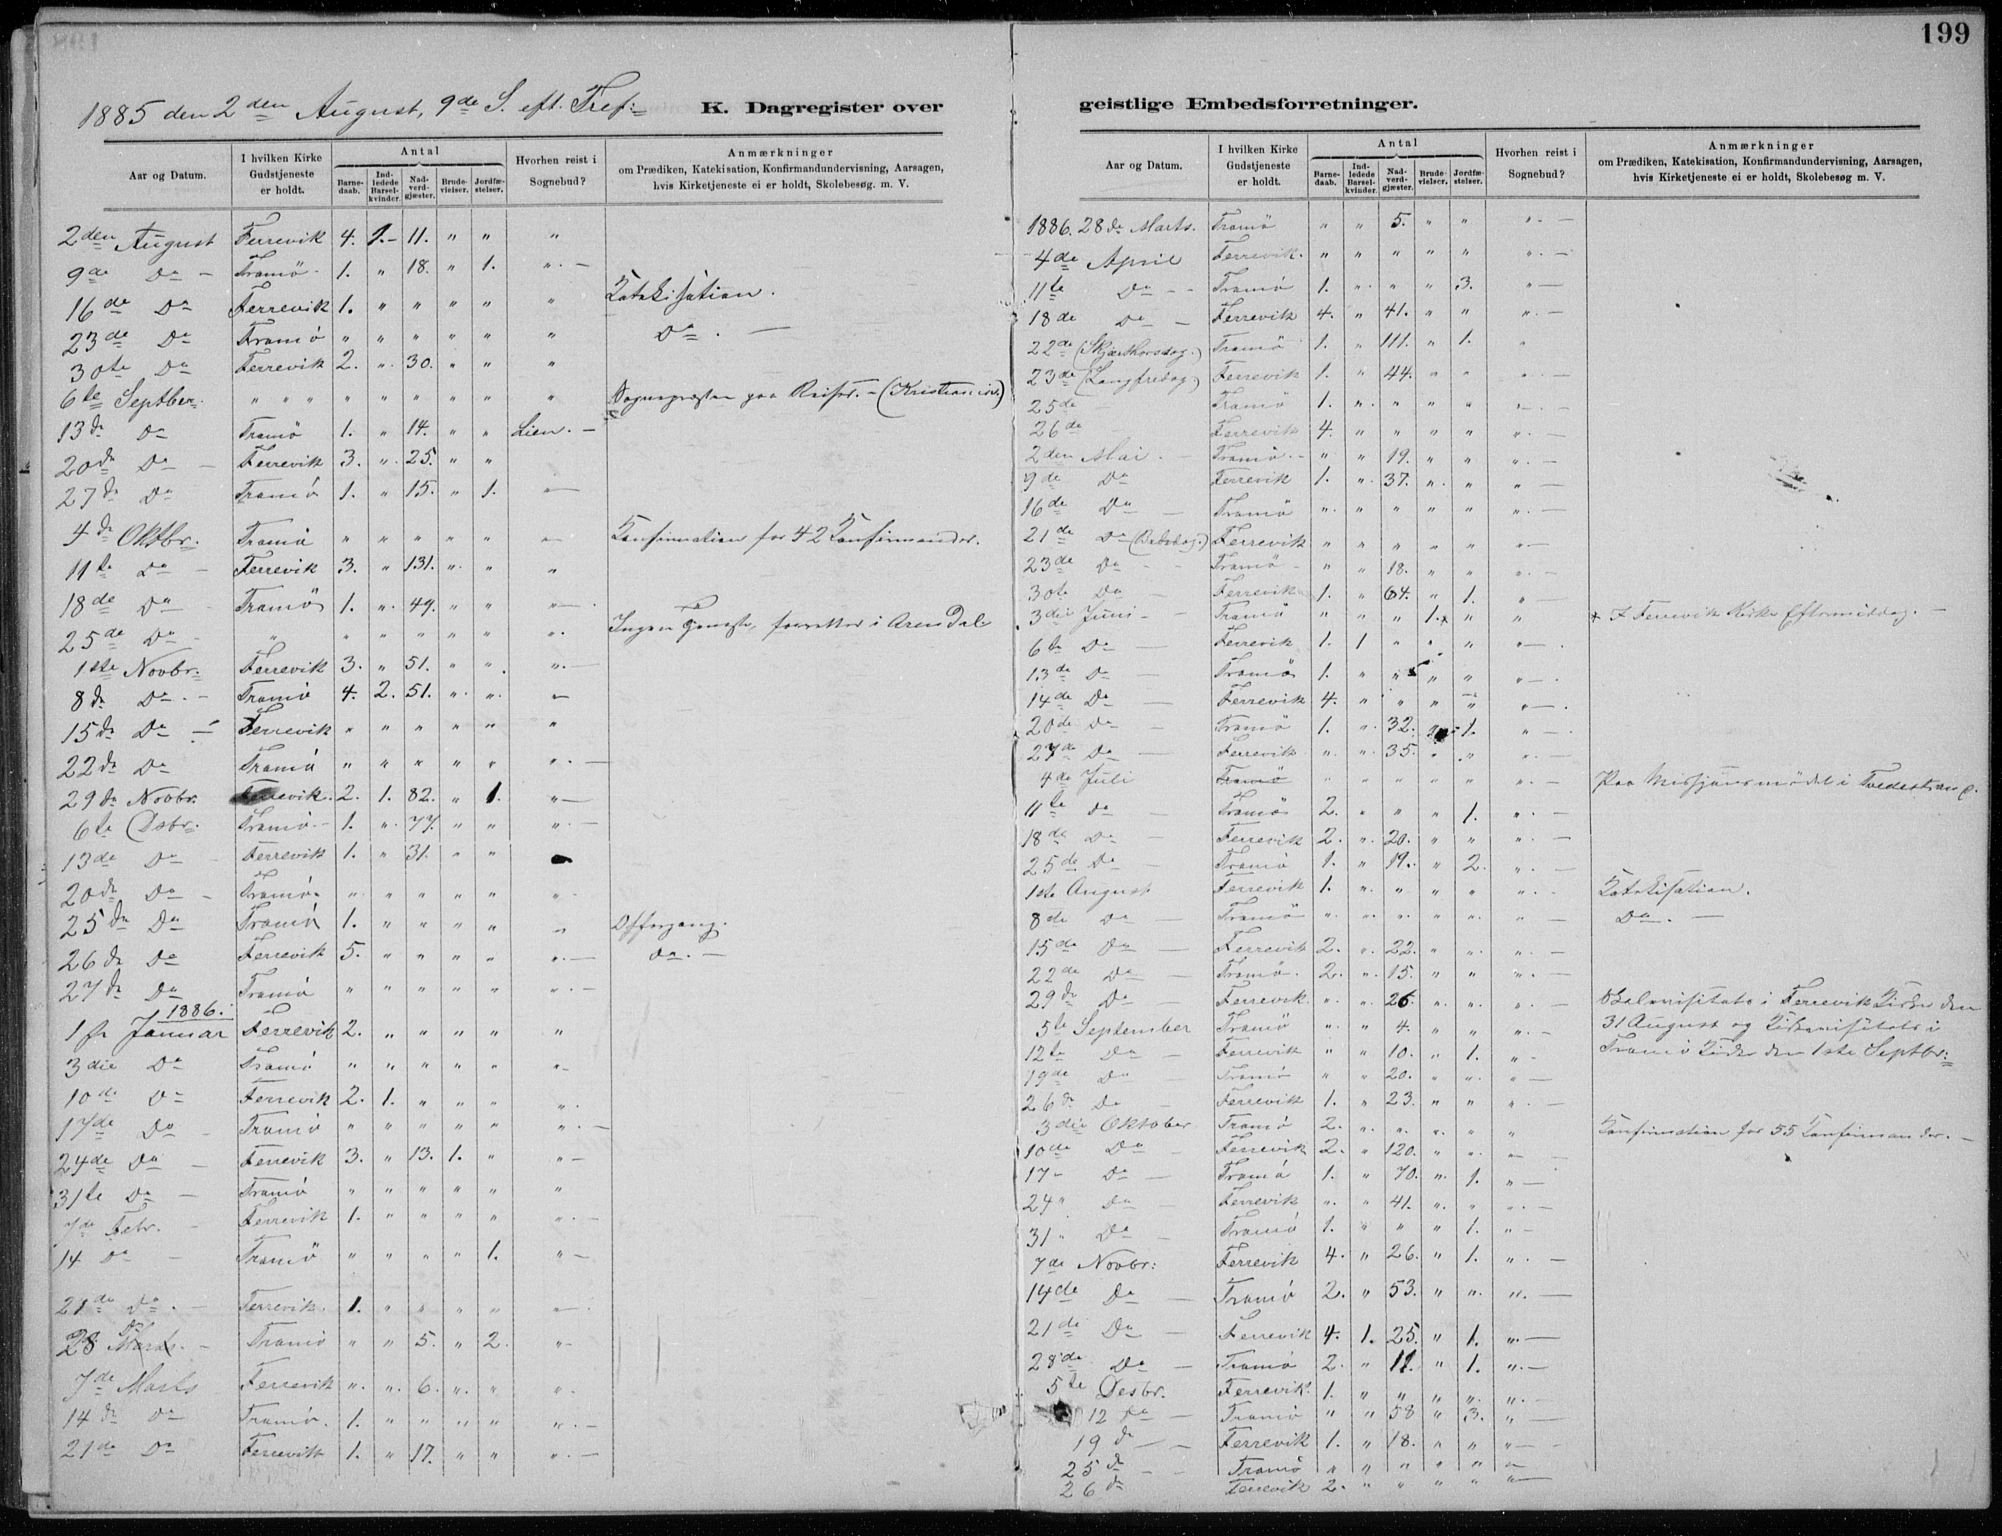 199
1885 den 2den August, 9de S. eft. Tref:
K. Dagregister over geistlige Embedsforretninger.
Aar og Datum. I hvilken Kirke Gudstjeneste er holdt. Antal Barnedaab. Indledede Barselkvinder. Nadverdgjæster. Brudevielser. Jordfæstelser. Hvorhen reist i Sognebud? Anmærkninger om Prædiken, Katekisation, Konfirmandundervisning, Aarsagen, hvis Kirketjeneste ei er holdt, Skolebesøg. m. V.
2den August Færrevik 4. 1.- 11. " " "
9de Do - Tromø 1. " 18. " 1. " -
16de Do Færrevik 1. " " " " " Katekisation.
23de Do Tromø " " " " " " Do. -
30te Do Færrevik 2. " 30. " " "
6te Septber. " " " " " " " Sognepræsten paa Reiser. - (Kristiania)
13de Do Tromø 1. " 14. " " Lien. -
20de Do - Færrevik 3. " 25. " "
27de Do Tromø 1. " 15. " 1. " -
4de Oktbr. Tromø " " " " " " Konfirmation for 42 Konfirmander.
11te Do - Færrevik 3. " 131. " " "
18de Do Tromø 1. " 49. " " " -
25de Do - " " " " " " " Ingen Tjeneste, forretter i Arendal
1ste Novbr. Færrevik 3. " 51. " " " -
8de Do. - Tromø 4. 2. 51. " " " -
15de Do - Færrevik " " " " " "
22de Do Tromø " " " " " " -
29de Novbr. Færrevik. 2. 1. 82. " 1. " -
6te Dsbr. Tromø - 1. " 77. " " " -
13de Do - Færrevik 1. " 31. " "
20de Do - Tromø. " " " " " "
25de Do Tromø 1. " " " " " Offergang.
26de Do Færrevik 5. " " " " " - do. -
27de Do Tromø " " " " " " -
1886.
1ste Januar Færrevik 2. " " " " "
3die Do Tromø " " " " " " -
10de Do Færrevik 2. 1. " " " "
17de Do - Tromø " " " " " " -
24de Do - Færrevik 3. " 13. 1. " " -
31te Do - Tromø " " " " " "
7de Febr. - Færrevik 1. " " " " " -
14 Do - Tromø " " " " 1. " -
21de Do. - Færrevik. 1. " " " " " -
28 Do Marts. - Tromø " " 5. " 2. " -
7de Marts Færrevik " " 6. " " "
14de Do Tromø. 1. " " " " " -
21de Do Færrevik 1. " 17. " " " -
Aar og Datum. I hvilken Kirke Gudstjeneste er holdt. Antal Barnedaab. Indledede Barselkvinder. Nadverdgjæster. Brudevielser. Jordfæstelser. Hvorhen reist i Sognebud? Anmærkninger om Prædiken, Katekisation, Konfirmandundervisning, Aarsagen, hvis Kirketjeneste ei er holdt, Skolebesøg m. V.
1886. 28de Marts. Tromø " " 5. " " " -
4de April Færrevik. " " " " " " -
11te Do - - Tromø 1. " " " 3. " -
18de Do - Færrevik 4. " 41. " " " -
22de (Skjærthorsdag.) Tromø 1. " 111. " 1. "
23de (Langfredag.) Færrevik 1. " 44. " " " -
25de - Tromø 1. " " " " " -
26de Færrevik 4. " " " " " -
2den Mai. - Tromø - " " 19. " " " -
9de Do Færrevik 1. " 37. " " " -
16de Do - Tromø " " " " " " -
21de Do (Bededag.) Færrevik " " " " " " -
23de Do - - Tromø - " " 18. " " " -
30te Do - Færrevik 1. " 64. " 1. " -
3die Juni - Tromø " " " 1.* " " * I Færrevik Kirke Eftermiddag. -
6te Do - Færrevik 1. 1 " " " " -
13de Do - Tromø 1. " 5 " " " -
14de Do - Færrevik 4. " " " " " -
20de Do - Tromø 1. " 32. " 1. " -
27de Do - Færrevik " " 35. " " " -
4de Juli Tromø " " " " " " - Paa Missionsmødet i Tvedestrand.
11te Do - Tromø 2. " " " 1. " -
18de Do - Færrevik 2. " 20. " " " -
25de Do - Tromø 1. " 19. " 2. " -
1ste August Færrevik 1. " " " " " - Katekisation.
8de Do - Tromø " " " " " " - Do. -
15de Do - Færrevik 2. " 22. " " " -
22de Do - Tromø. 2. " 15. " " " -
29de Do - Færrevik " " 26. " " " - i Færrevik Kirke den
5te September Tromø " " 4. " " " - 31 August og i
12te Do - Færrevik " " 10. " 1. " - Tromø Kirke den 1ste Septbr.
19de Do - Tromø " " 20. " " " -
26de Do - Færrevik 1. " 23. " " " -
3die Oktober Tromø 2. " " " " " Konfirmation for 55 Konfirmander. -
10de Do - Færrevik 2. " 120. " " " -
17 " Do - Tromø 1. " 70. " 1. " -
24 " Do - Færrevik " " 41. " " " -
31 " Do - Tromø 1. " " " 1. " -
7de Novbr: Færrevik 4. " 26. " 1. " -
14de Do - Tromø 2. " 53. " " " -
21de Do - Færrevik 4. 1. 25. " 1. " -
28de Do - Tromø 2. " 11. " 1. " -
5te Desbr. Færrevik. 1. " " " " " -
12 Do - Tromø " " 58 " 3. " -
19 d - - Færrevik 1. " 18. " " " -
25 d - - Tromø " " " " " " -
26 d Færrevik 2. " " " " " -